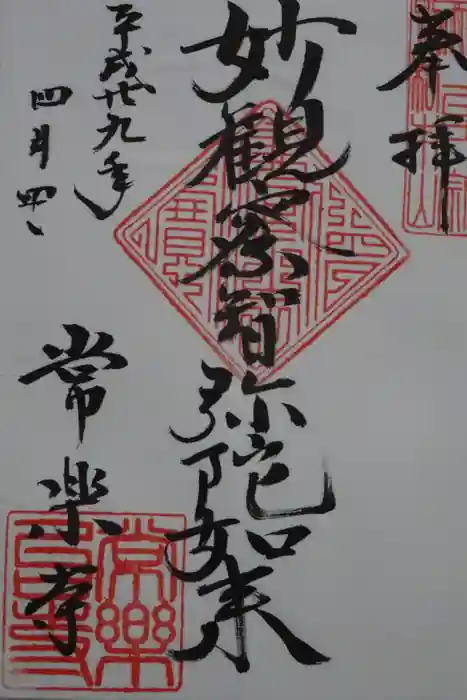 奉拝
妙観察智弥陀如来
平成廿九年
四月四日
常楽寺
常樂